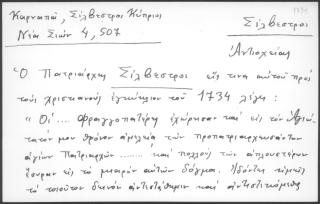 Καρναπᾶ, Σίλβεστρος Κύπριος
Νέα Σιών 4, 507
Σίλβεστρος
Ἀντιοχείας
Ὁ Πατριάρχης Σίλβεστρος εἴς τινα αὐτοῦ πρὸς
τοὺς χριστιανοὺς ἐγκύκλιον τοῦ 1734 λέγει:
«Οἱ .... φραγγοπατέρες ἐχώρησαν καὶ εἰς τὸν Ἁγιώ-
τατόν μου θρόνον ἀμελείᾳ τῶν προπατριαρχευσάντων
ἁγίων Πατριαρχῶν ........ καὶ πολλοὺς τῶν ἁπλουστέρων
ἔσυραν εἰς τὸ μιαρὸν αὐτῶν δόγμα. Ἰδόντες ἡμεῖς
τὸ τοιοῦτον δεινὸν ἀντέστημεν καὶ